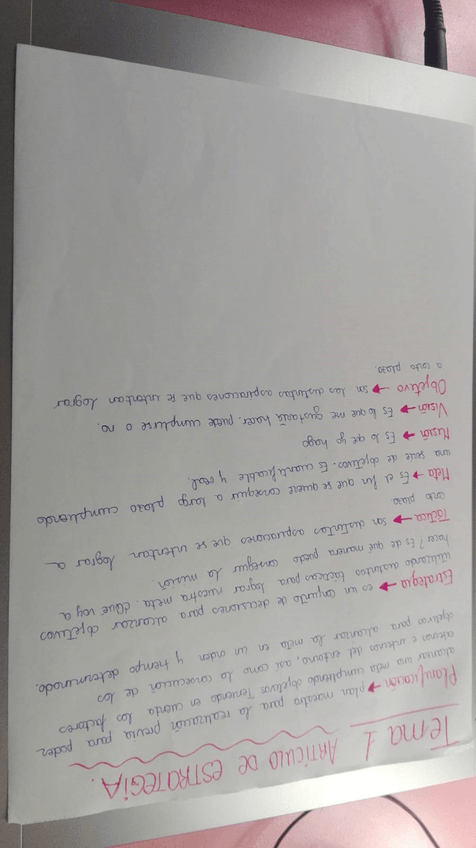 Tema 1 ARTÍCULO DE ESTRATEGIA.
Planificación → plan maestro para la realización previa para poder
alcanzar una meta cumpliendo objetivos. Teniendo en cuenta los factores
externos e internos del entorno, así como la consecución de los
objetivos para alcanzar la meta en un orden y tiempo determinado.
Estrategia → es un conjunto de decisiones para alcanzar objetivos
utilizando distintas tácticas para lograr nuestra meta. ¿Qué voy a
hacer? Es de qué manera puedo conseguir la misión.
Táctica → son distintas aspiraciones que se intentan lograr a
corto plazo
Meta → Es el fin que se quiere conseguir a largo plazo cumpliendo
una serie de objetivos. Es cuantificable y real.
Misión → Es lo que yo hago
Visión → Es lo que me gustaría hacer. puede cumplirse o no.
Objetivo → son las distintas aspiraciones que se intentan lograr
a corto plazo.